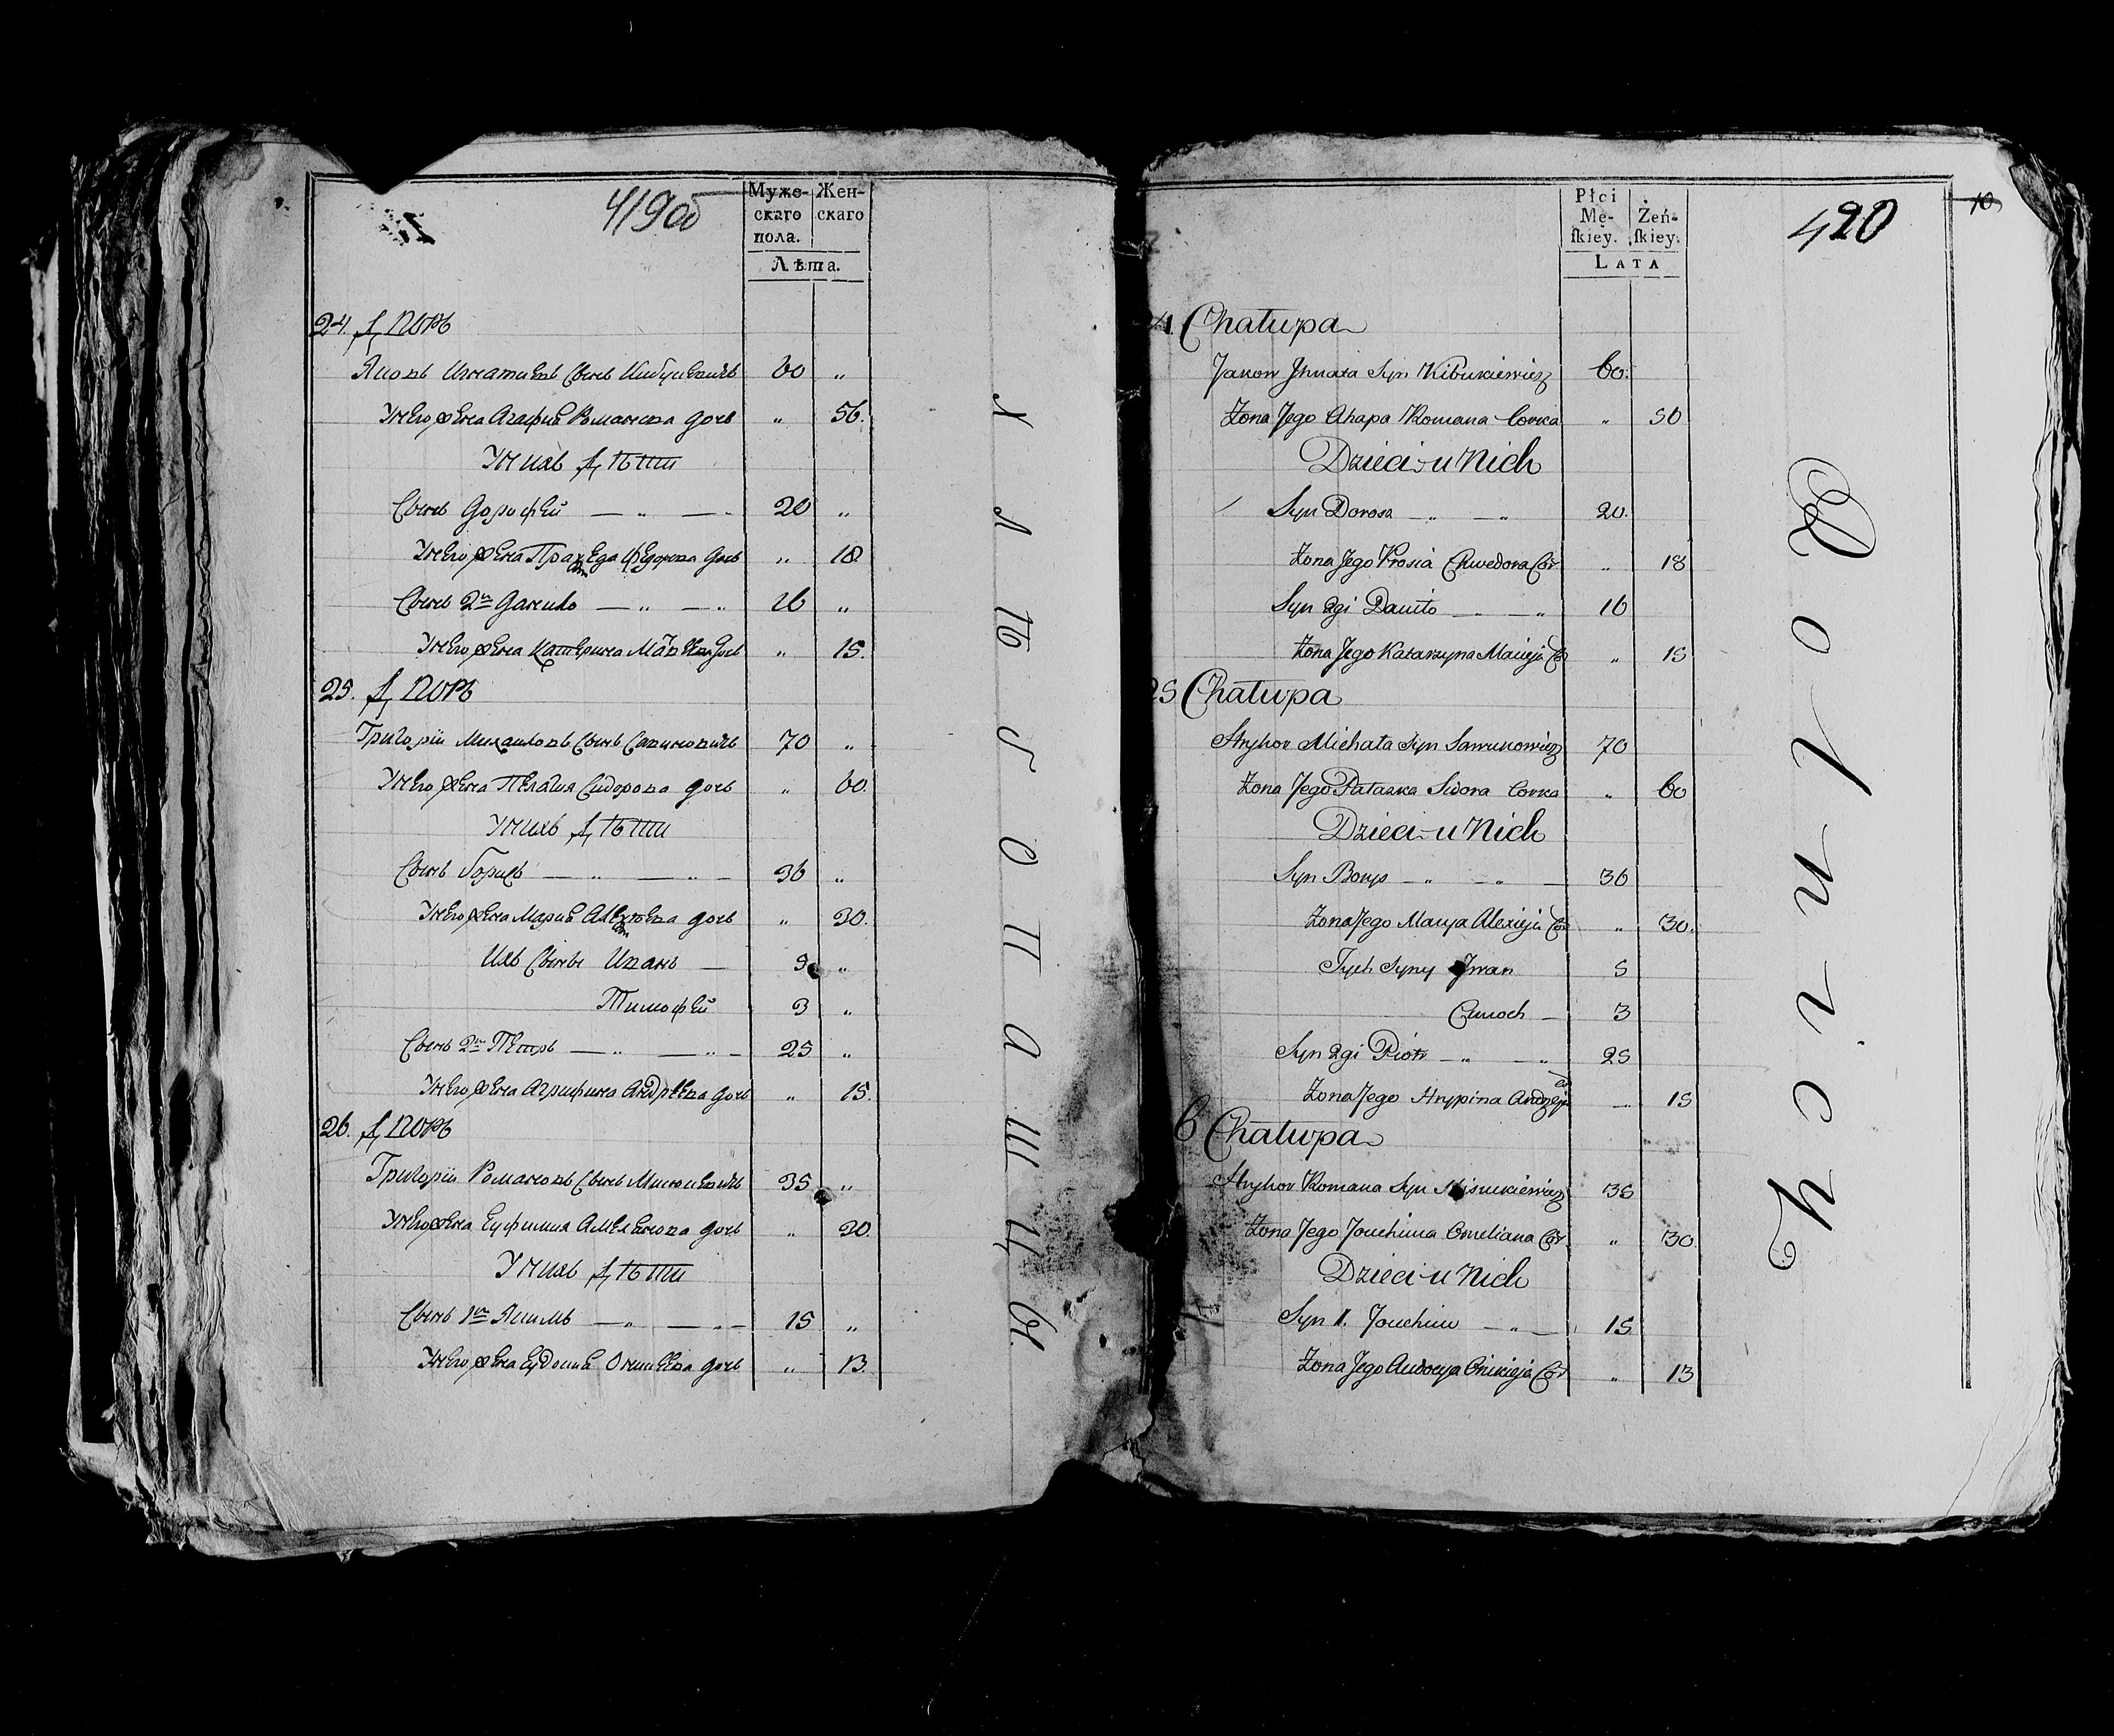 419об
Муже-
скаго
пола.
Жен-
скаго
Лѣта.
24. Дворъ
Яковъ Игнатьевъ Сынъ Кибукевичъ 60 „
У него жена Агафия Романова дочь „ 56.
У нихъ Дѣти
Сынъ Дорофей — „ — 20 „
У него жена Праскеда Федорова дочь „ 18
Сынъ 2й Данило — „ — „ 16 „
У него жена Катерина Матвѣева дочь „ 15.
25. Дворъ
Григорій Михаиловъ Сынъ Савуновичъ 70 „
У него жена Пелагия Сидорова дочь „ 60.
У нихъ Дѣти
Сынъ Борисъ — „ — „ — 36 „
У него жена Мария Алексѣева дочь „ 30.
Ихъ Сыны Иванъ — 5 „
Тимофей 3 „
Сынъ 2й Петръ — „ — „ — 25 „
У него жена Агрифина Андрѣева дочь „ 15.
26. Дворъ
Григорій Романовъ Сынъ Мисюкевичъ 35 „
У него жена Еуфимия Амельянова дочь „ 30.
У нихъ Дѣти
Сынъ 1й Якимъ — „ — „ — 15 „
У него жена Еудокия Оникеева дочь „ 13.
Хлѣбопашцы
420
10
Płci
Mę-
ſkiey.
Żeń-
ſkiey.
LATA
4. Chałupa
Jakow Ihnata Syn Kibukiewicz 60.
Żona Jego Ahapa Romana Corka „ 56
Dzieci u Nich
Syn Dorosz — „ — „ 20.
Żona Jego Prosia Chwedora Cór „ 18
Syn 2gi Daniło — „ 16
Żona Jego Katarzyna Macieja Cór „ 15
25 Chałupa
Hryhor Michała Syn Sawunowicz 70
Żona Jego Pałaszka Sidora Corka „ 60
Dzieci u Nich
Syn Borys — „ — „ — 36
Żona Jego Marya Alexieja Cór „ 30.
Tych Syny Jwan 5
Cimoch — 3
Syn 2gi Piotr — „ — „ 25
Żona Jego Hrypina Andrzeja Có — 15
6 Chałupa
Hryhor Romana Syn Misiukiewicz 35
Żona Jego Jouchima Omeliana Cór. „ 30
Dzieci u Nich
Syn 1. Jouchim — „ — 15
Żona Jego Audocya Onikieja Cór „ 13
Rolnicy